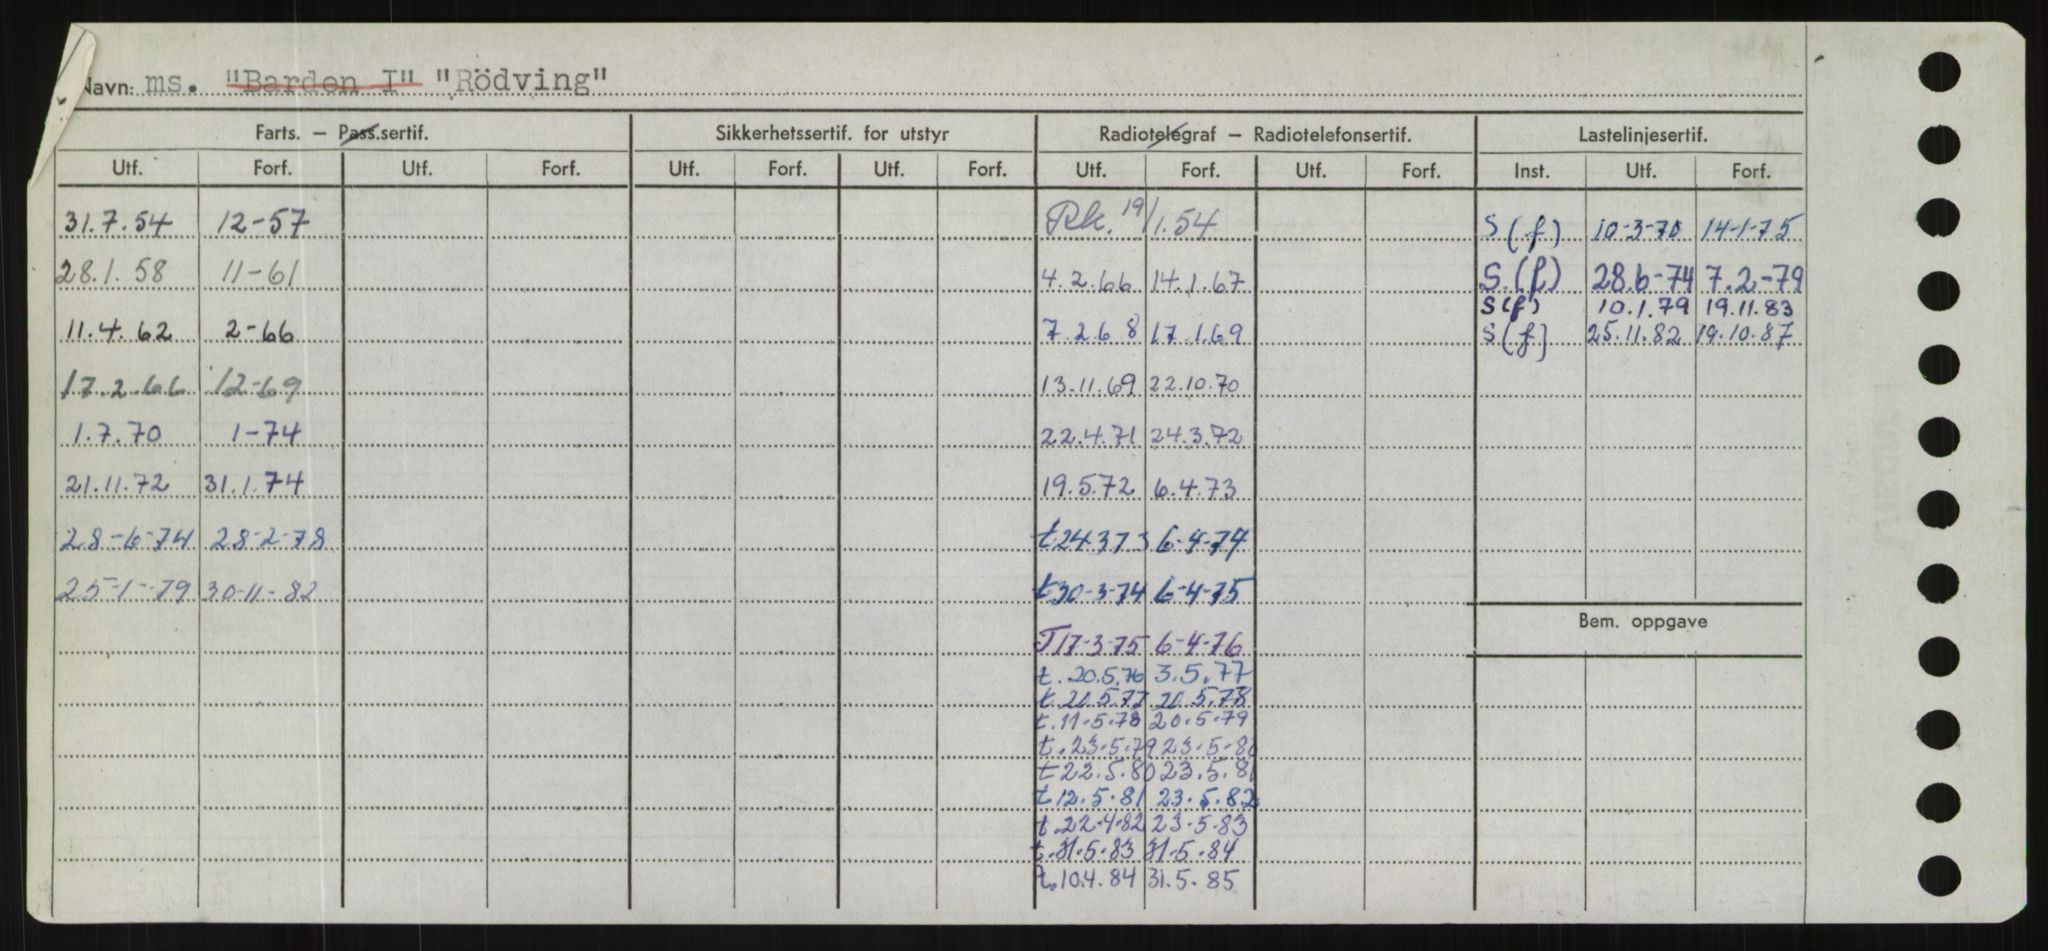 Navn: ms. "Barden I" "Rödving"
Farts. – Pass.sertif. Sikkerhetssertif. for utstyr Radiotelegraf – Radiotelefonsertif. Lastelinjesertif.
Utf. Forf. Utf. Forf. Utf. Forf. Utf. Forf. Utf. Forf. Utf. Forf. Inst. Utf. Forf.
31.7.54 12-57 Rk. 19/1.54 S(f) 10-3-70 14-1-75
28.1.58 11-61 4.2.66 14.1.67 S.(f) 28.6-74 7.2-79
S(f) 10.1.79 19.11.83
11.4.62 2-66 7.2.68 17.1.69 S(f) 25.11.82 19.10.87
17.2.66 12-69 13.11.69 22.10.70
1.7.70 1-74 22.4.71 24.3.72
21.11.72 31.1.74 19.5.72 6.4.73
28-6-74 28-2-78 t 24.3.73 6-4-74
25-1-79 30-11-82 t 30-3-74 6-4-75
Bem. oppgave
T 17-3-75 6-4-76
t. 20.5.76 3.5.77
t. 20.5.77 20.5.78
t. 11.5.78 20.5.79
t. 23.5.79 23.5.80
t 22.5.80 23.5.81
t 12.5.81 23.5.82
t. 22.4.82 23.5.83
t. 31.5.83 31.5.84
t. 10.4.84 31.5.85